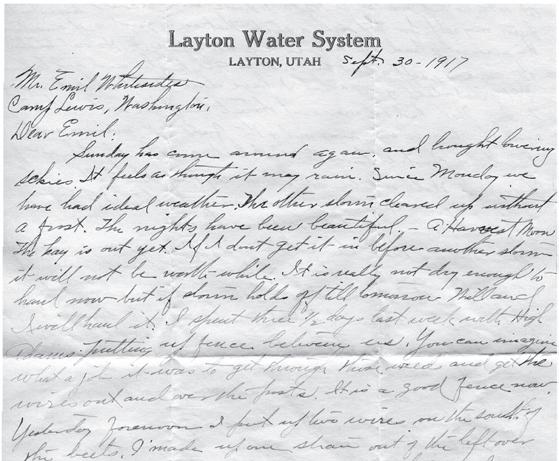 Layton Water System
LAYTON, UTAH Sept. 30-1917
Mr. Emil Whitesides
Camp Lewis, Washington.
Dear Emil:
Sunday has come around again, and brought lowering
skies. It feels as though it may rain. Since Monday we
have had ideal weather. The other storm cleared up without
a frost. The nights have been beautiful, - a Harvest Moon
The hay is out yet. If I dont get it in before another storm
it will not be worth while. It is really not dry enough to
haul now but if storm holds off till tomorrow Will and
I will haul it. I spent three ½ days last week with High
Adams putting up fence between us. You can imagine
what a job it was to get through those weed and get the
wires out and over the posts. It is a good fence now.
Yesterday forenoon I put up two wires on the south of
the beets. I made up one strain out of the left over